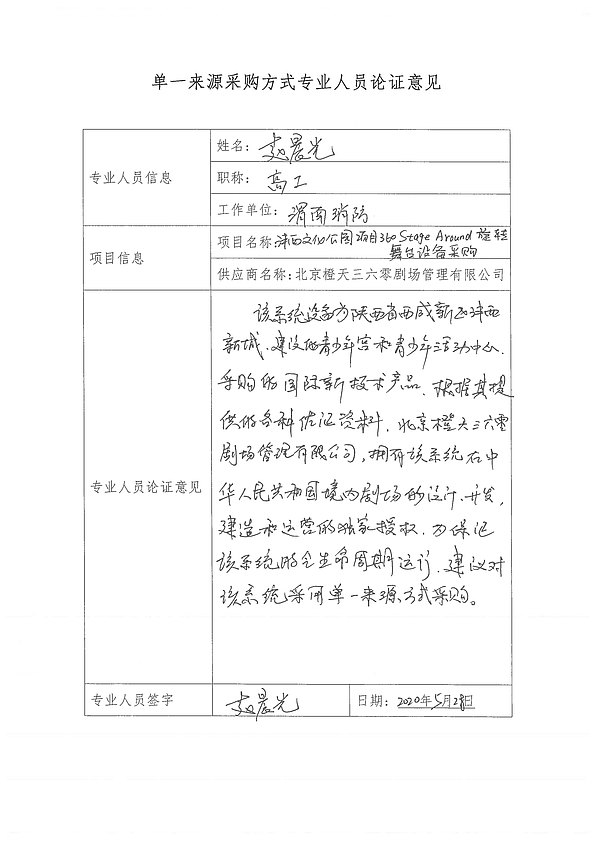 单一来源采购方式专业人员论证意见
专业人员信息
姓名：赵晨光
职称：高工
工作单位：渭南消防
项目信息
项目名称：沣西文化公园项目360 Stage Around 旋转
舞台设备采购
供应商名称：北京橙天三六零剧场管理有限公司
专业人员论证意见
该系统设备为陕西省西咸新区沣西
新城，建设的青少年宫和青少年活动中心
采购的国际新技术产品，根据其提
供的各种佐证资料，北京橙天三六零
剧场管理有限公司，拥有该系统在中
华人民共和国境内剧场的设计、开发，
建造和运营的独家授权，为保证
该系统的全生命周期运行，建议对
该系统采用单一来源方式采购。
专业人员签字
赵晨光
日期：2020年5月28日